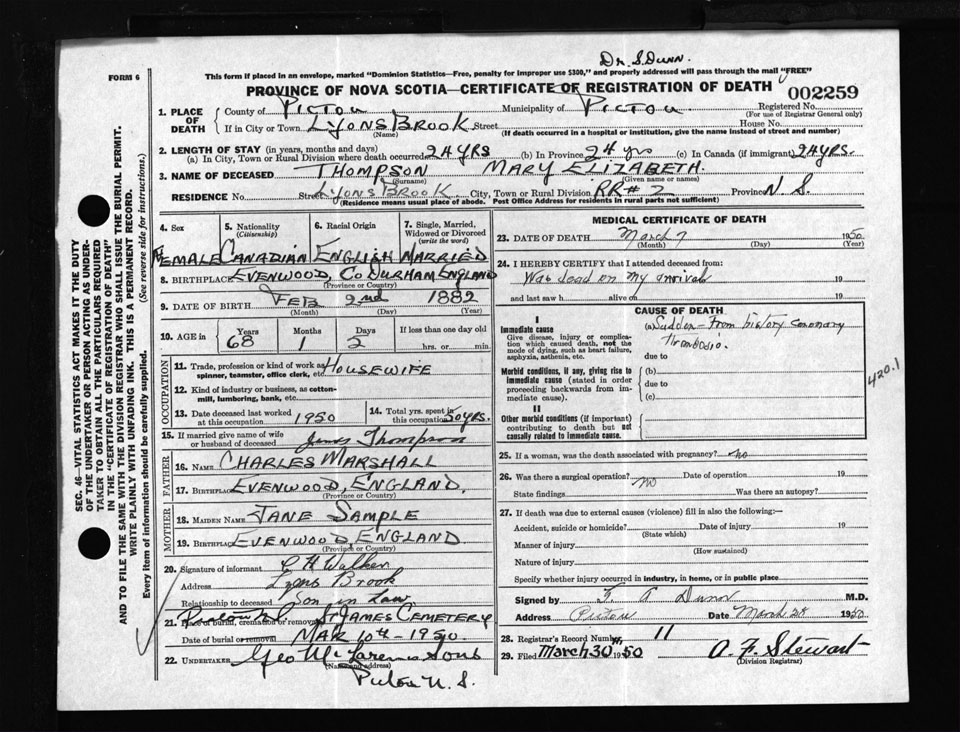 Dr. S. Dunn.
FORM 6
This form if placed in an envelope, marked "Dominion Statistics—Free, penalty for improper use $300," and properly addressed will pass through the mail "FREE"
PROVINCE OF NOVA SCOTIA—CERTIFICATE OF REGISTRATION OF DEATH
002259
1. PLACE OF DEATH
County of PICTOU Municipality of PICTOU Registered No.
(For use of Registrar General only)
If in City or Town LYONS BROOK Street House No.
(Name) (If death occurred in a hospital or institution, give the name instead of street and number)
2. LENGTH OF STAY (in years, months and days)
(a) In City, Town or Rural Division where death occurred 24 YRS (b) In Province 24 yrs (c) In Canada (if immigrant) 24 YRS.
3. NAME OF DECEASED THOMPSON MARY ELIZABETH.
(Surname) (Given name or names)
RESIDENCE No. Street LYONS BROOK City, Town or Rural Division RR# 2 Province N. S.
(Residence means usual place of abode. Post Office Address for residents in rural parts not sufficient)
4. Sex 5. Nationality (Citizenship) 6. Racial Origin 7. Single, Married, Widowed or Divorced (write the word)
FEMALE CANADIAN ENGLISH MARRIED
8. BIRTHPLACE EVENWOOD, CO DURHAM ENGLAND
(Province or Country)
9. DATE OF BIRTH FEB 2nd 1882
(Month) (Day) (Year)
10. AGE in Years Months Days If less than one day old
68 1 2 hrs. or min.
OCCUPATION
11. Trade, profession or kind of work as spinner, teamster, office clerk, etc. HOUSEWIFE
12. Kind of industry or business, as cotton-mill, lumbering, bank, etc.
13. Date deceased last worked at this occupation 1950 14. Total yrs. spent in this occupation 50 YRS.
15. If married give name of wife or husband of deceased James Thompson
FATHER
16. NAME CHARLES MARSHALL
17. BIRTHPLACE EVENWOOD, ENGLAND.
(Province or Country)
MOTHER
18. MAIDEN NAME JANE SAMPLE
19. BIRTHPLACE EVENWOOD, ENGLAND.
(Province or Country)
20. Signature of informant C H Walker
Address Lyons Brook
Relationship to deceased Son in Law
21. Place of burial, cremation or removal ST JAMES CEMETERY
Date of burial or removal MAR 10th - 1950
22. UNDERTAKER Geo McLaren & Sons
(Name and address)
Pictou N. S.
MEDICAL CERTIFICATE OF DEATH
23. DATE OF DEATH March 7 1950
(Month) (Day) (Year)
24. I HEREBY CERTIFY that I attended deceased from:
Was dead on my arrival 19
and last saw h alive on 19
CAUSE OF DEATH
I
Immediate cause
Give disease, injury or complication which caused death, not the mode of dying, such as heart failure, asphyxia, asthenia, etc.
(a) Sudden - From history coronary thrombosis.
due to
Morbid conditions, if any, giving rise to immediate cause (stated in order proceeding backwards from immediate cause).
(b)
due to
(c)
420.1
II
Other morbid conditions (if important) contributing to death but not causally related to immediate cause.
25. If a woman, was the death associated with pregnancy? no
26. Was there a surgical operation? no Date of operation 19
State findings Was there an autopsy?
27. If death was due to external causes (violence) fill in also the following:—
Accident, suicide or homicide? Date of injury 19
(State which)
Manner of injury
(How sustained)
Nature of injury
Specify whether injury occurred in industry, in home, or in public place
Signed by Dunn M.D.
Address Pictou Date March 28 1950
28. Registrar's Record Number 11
29. Filed March 30 1950 A. F. Stewart
(Division Registrar)
SEC. 46—VITAL STATISTICS ACT MAKES IT THE DUTY
OF THE UNDERTAKER OR PERSON ACTING AS UNDER-
TAKER TO OBTAIN ALL THE PARTICULARS REQUIRED
IN THE "CERTIFICATE OF REGISTRATION OF DEATH"
AND TO FILE THE SAME WITH THE DIVISION REGISTRAR WHO SHALL ISSUE THE BURIAL PERMIT.
WRITE PLAINLY WITH UNFADING INK. THIS IS A PERMANENT RECORD.
Every item of information should be carefully supplied. (See reverse side for instructions.)